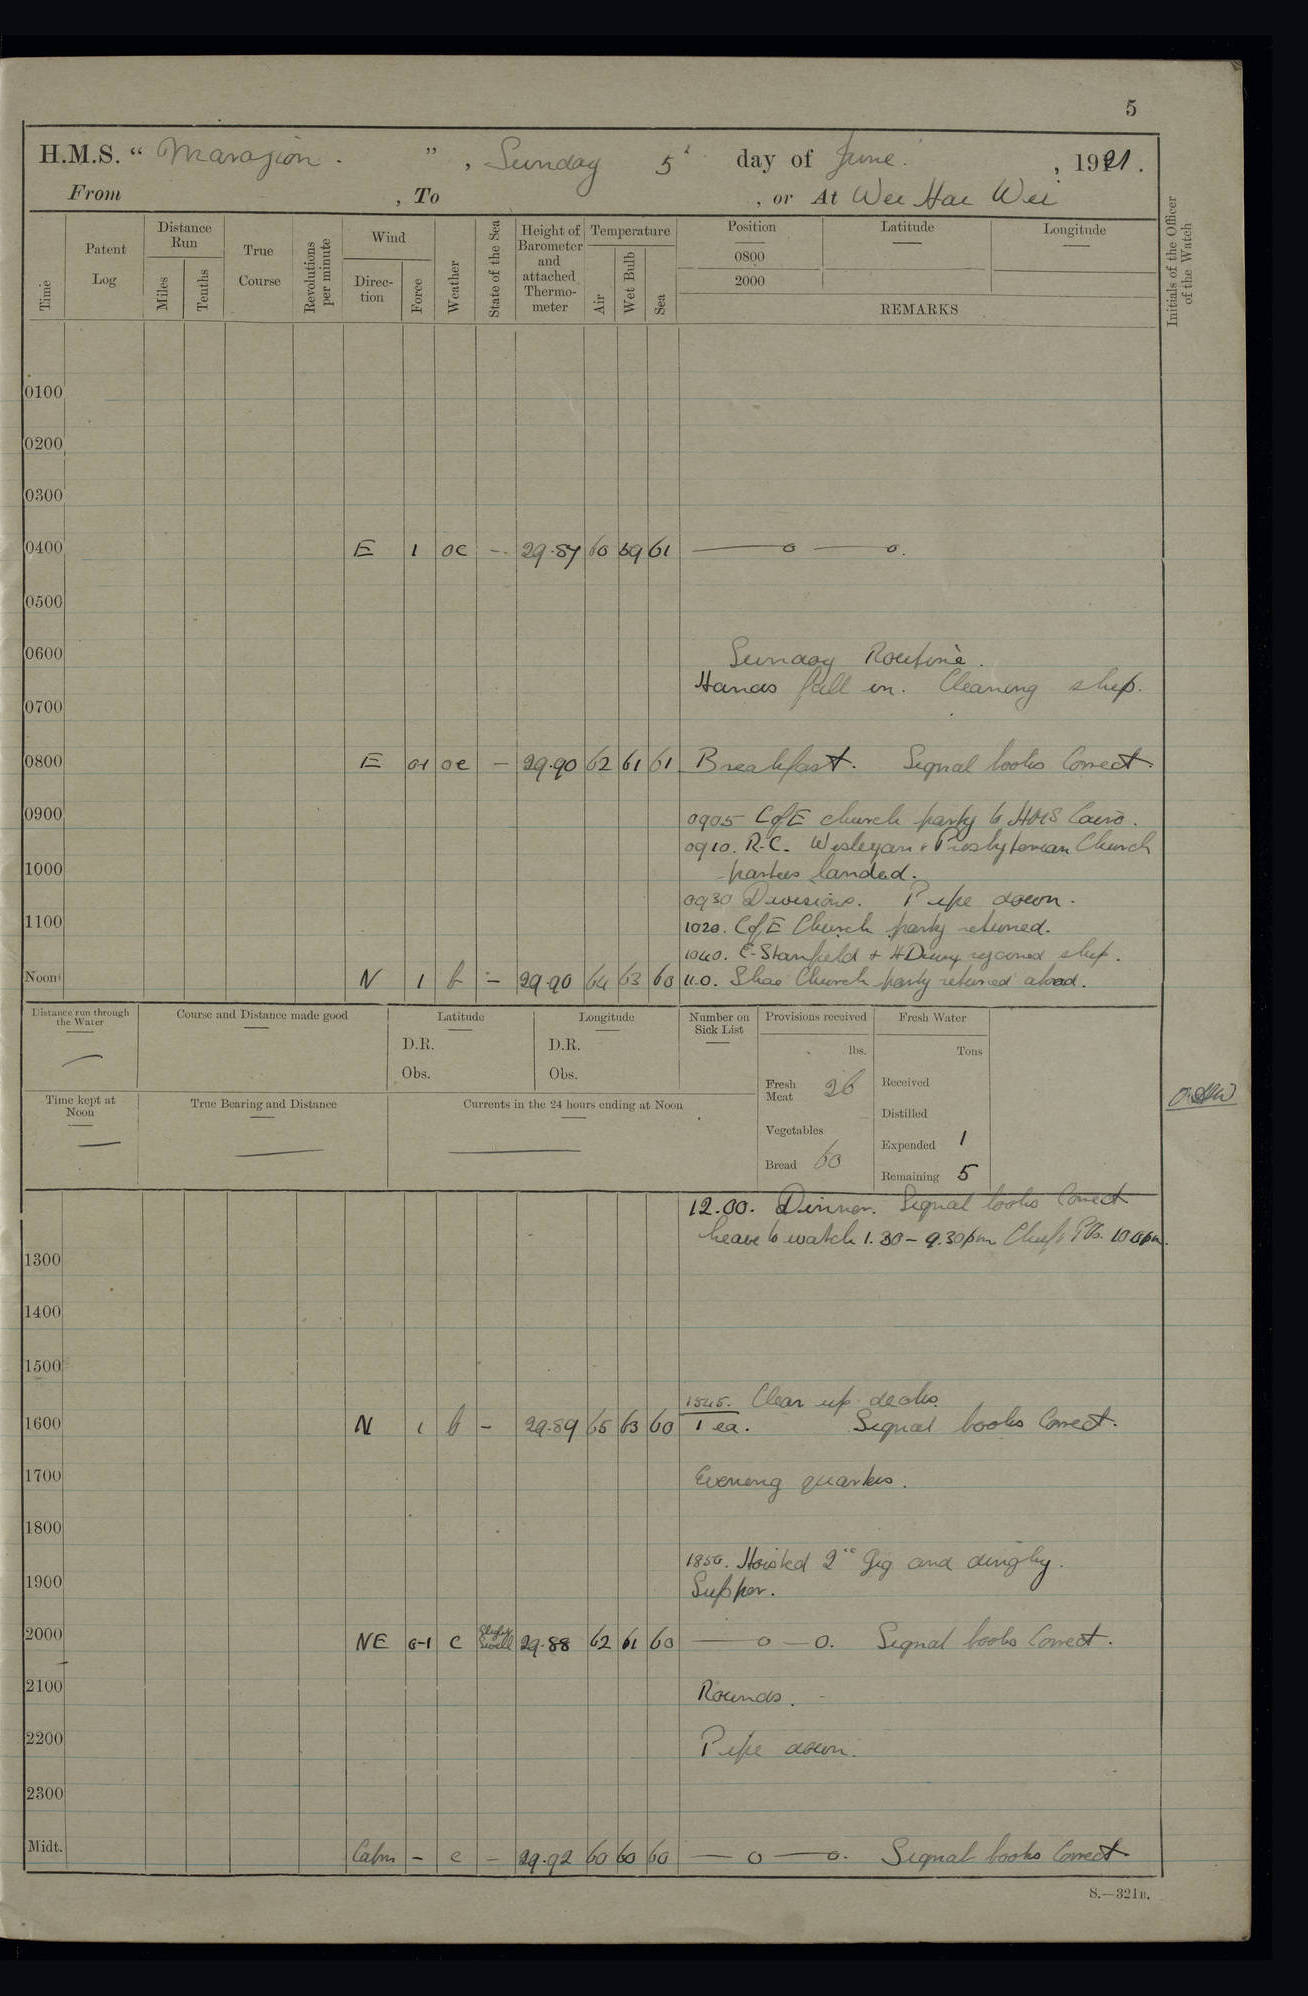 5
H.M.S. " Marazion . " , Sunday 5 day of June. , 1921.
From , To , or At Wei Hai Wei
Time
Patent Log
Distance Run
Miles
Tenths
True Course
Revolutions per minute
Wind
Direction
Force
Weather
State of the Sea
Height of Barometer and attached Thermometer
Temperature
Air
Wet Bulb
Sea
Position
0800
2000
Latitude
Longitude
REMARKS
Initials of the Officer of the Watch
0100
0200
0300
0400 E 1 oc - 29.87 60 59 61 —— o —— o.
0500
0600
Sunday Routine.
Hands fall in. Cleaning ship.
0700
0800 E 01 oc - 29.90 62 61 61 Breakfast. Signal books Correct.
0900
0905 C of E church party to HMS Cairo.
0910. R.C. Wesleyan + Presbyterian Church
parties landed.
1000
0930 Divisions. Pipe down.
1100
1020. C of E Church party returned.
1040. E. Stanfield + H rejoined ship.
Noon N 1 b - 29.90 64 63 60 11.0. Church party returned aboad.
Distance run through the Water
Course and Distance made good
Latitude
D.R.
Obs.
Longitude
D.R.
Obs.
Number on Sick List
Provisions received
lbs.
Fresh Meat 26
Vegetables
Bread 60
Fresh Water
Tons
Received
Distilled
Expended 1
Remaining 5
Time kept at Noon
True Bearing and Distance
Currents in the 24 hours ending at Noon
12.00. Dinner. Signal books Correct
Leave to watch 1.30 - 9.30pm Chiefs POs. 10 pm.
1300
1400
1500
1545. Clear up decks.
1600 N 1 b - 29.89 65 63 60 Tea. Signal books Correct.
1700 Evening quarters.
1800
1850. Hoisted 2 Gig and dinghy.
1900 Supper.
2000 NE 0-1 c Slight Swell 29.88 62 61 60 —— o — o. Signal books Correct.
2100 Rounds.
2200 Pipe down.
2300
Midt. Calm - c - 29.92 60 60 60 — o — o. Signal books Correct
S.—321B.